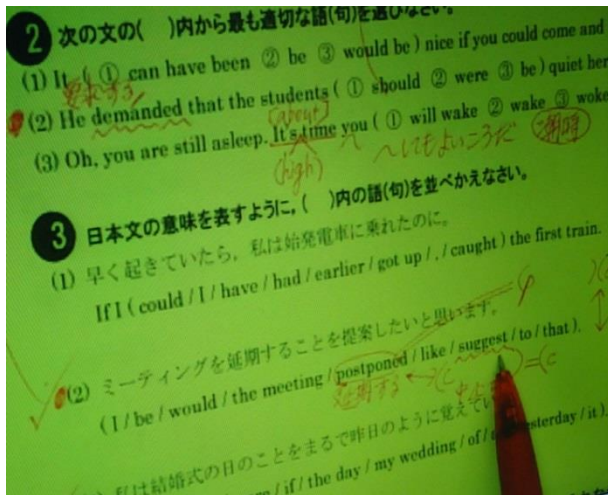 2 次の文の( )内から最も適切な語(句)を選びなさい。
(1) It ( ① can have been ② be ③ would be ) nice if you could come and
要求する
(2) He demanded that the students ( ① should ② were ③ be ) quiet her
(about)
(3) Oh, you are still asleep. It's time you ( ① will wake ② wake ③ woke
(high)
〜してもよいころだ
3 日本文の意味を表すように，( )内の語(句)を並べかえなさい。
(1) 早く起きていたら，私は始発電車に乗れたのに。
If I ( could / I / have / had / earlier / got up / , / caught ) the first train.
(2) ミーティングを延期することを提案したいと思います。
( I / be / would / the meeting / postponed / like / suggest / to / that ).
延期する
私は結婚式の日のことをまるで昨日のように覚えてい
/ if / the day / my wedding / of / yesterday / it ).